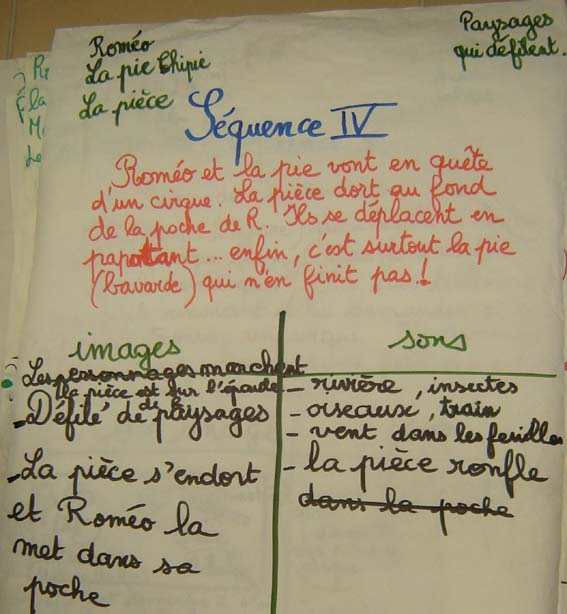 Roméo
La pie Chipie
La pièce
Paysages
qui défilent.
Séquence IV
Roméo et la pie vont en quête
d'un cirque. La pièce dort au fond
de la poche de R. Ils se déplacent en
papotant... enfin, c'est surtout la pie
(bavarde) qui n'en finit pas!
images
Les personnages marchent
la pièce est sur l'épaule
de
- Défilé de paysages
- La pièce s'endort
et Roméo la
met dans sa
poche
sons
- rivière, insectes
- oiseaux, train
- vent dans les feuilles
- la pièce ronfle
dans la poche